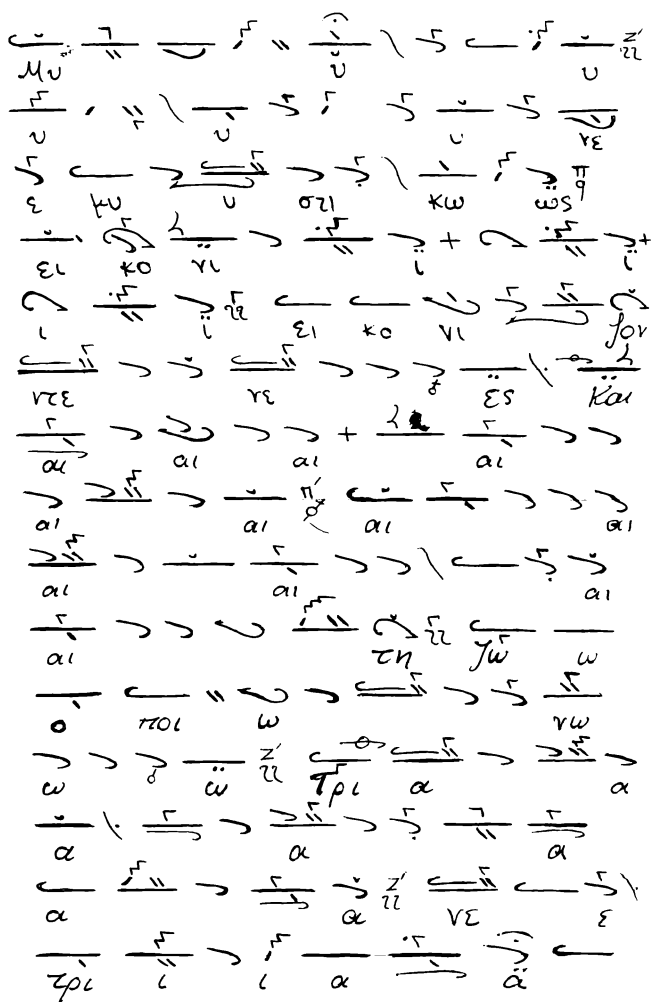 Μυ υ υ
υ υ υ νε
ε μυ υ στι κω ως
ει κο νι ι ι
ι ι ει κο νι ζον
ντε νε ες Και
αι αι αι αι
αι αι αι αι
αι αι αι
αι τη ζω ω
ο ποι ω νω
ω ω Τρι α α
α α α
α α νε ε
τρι ι ι α α